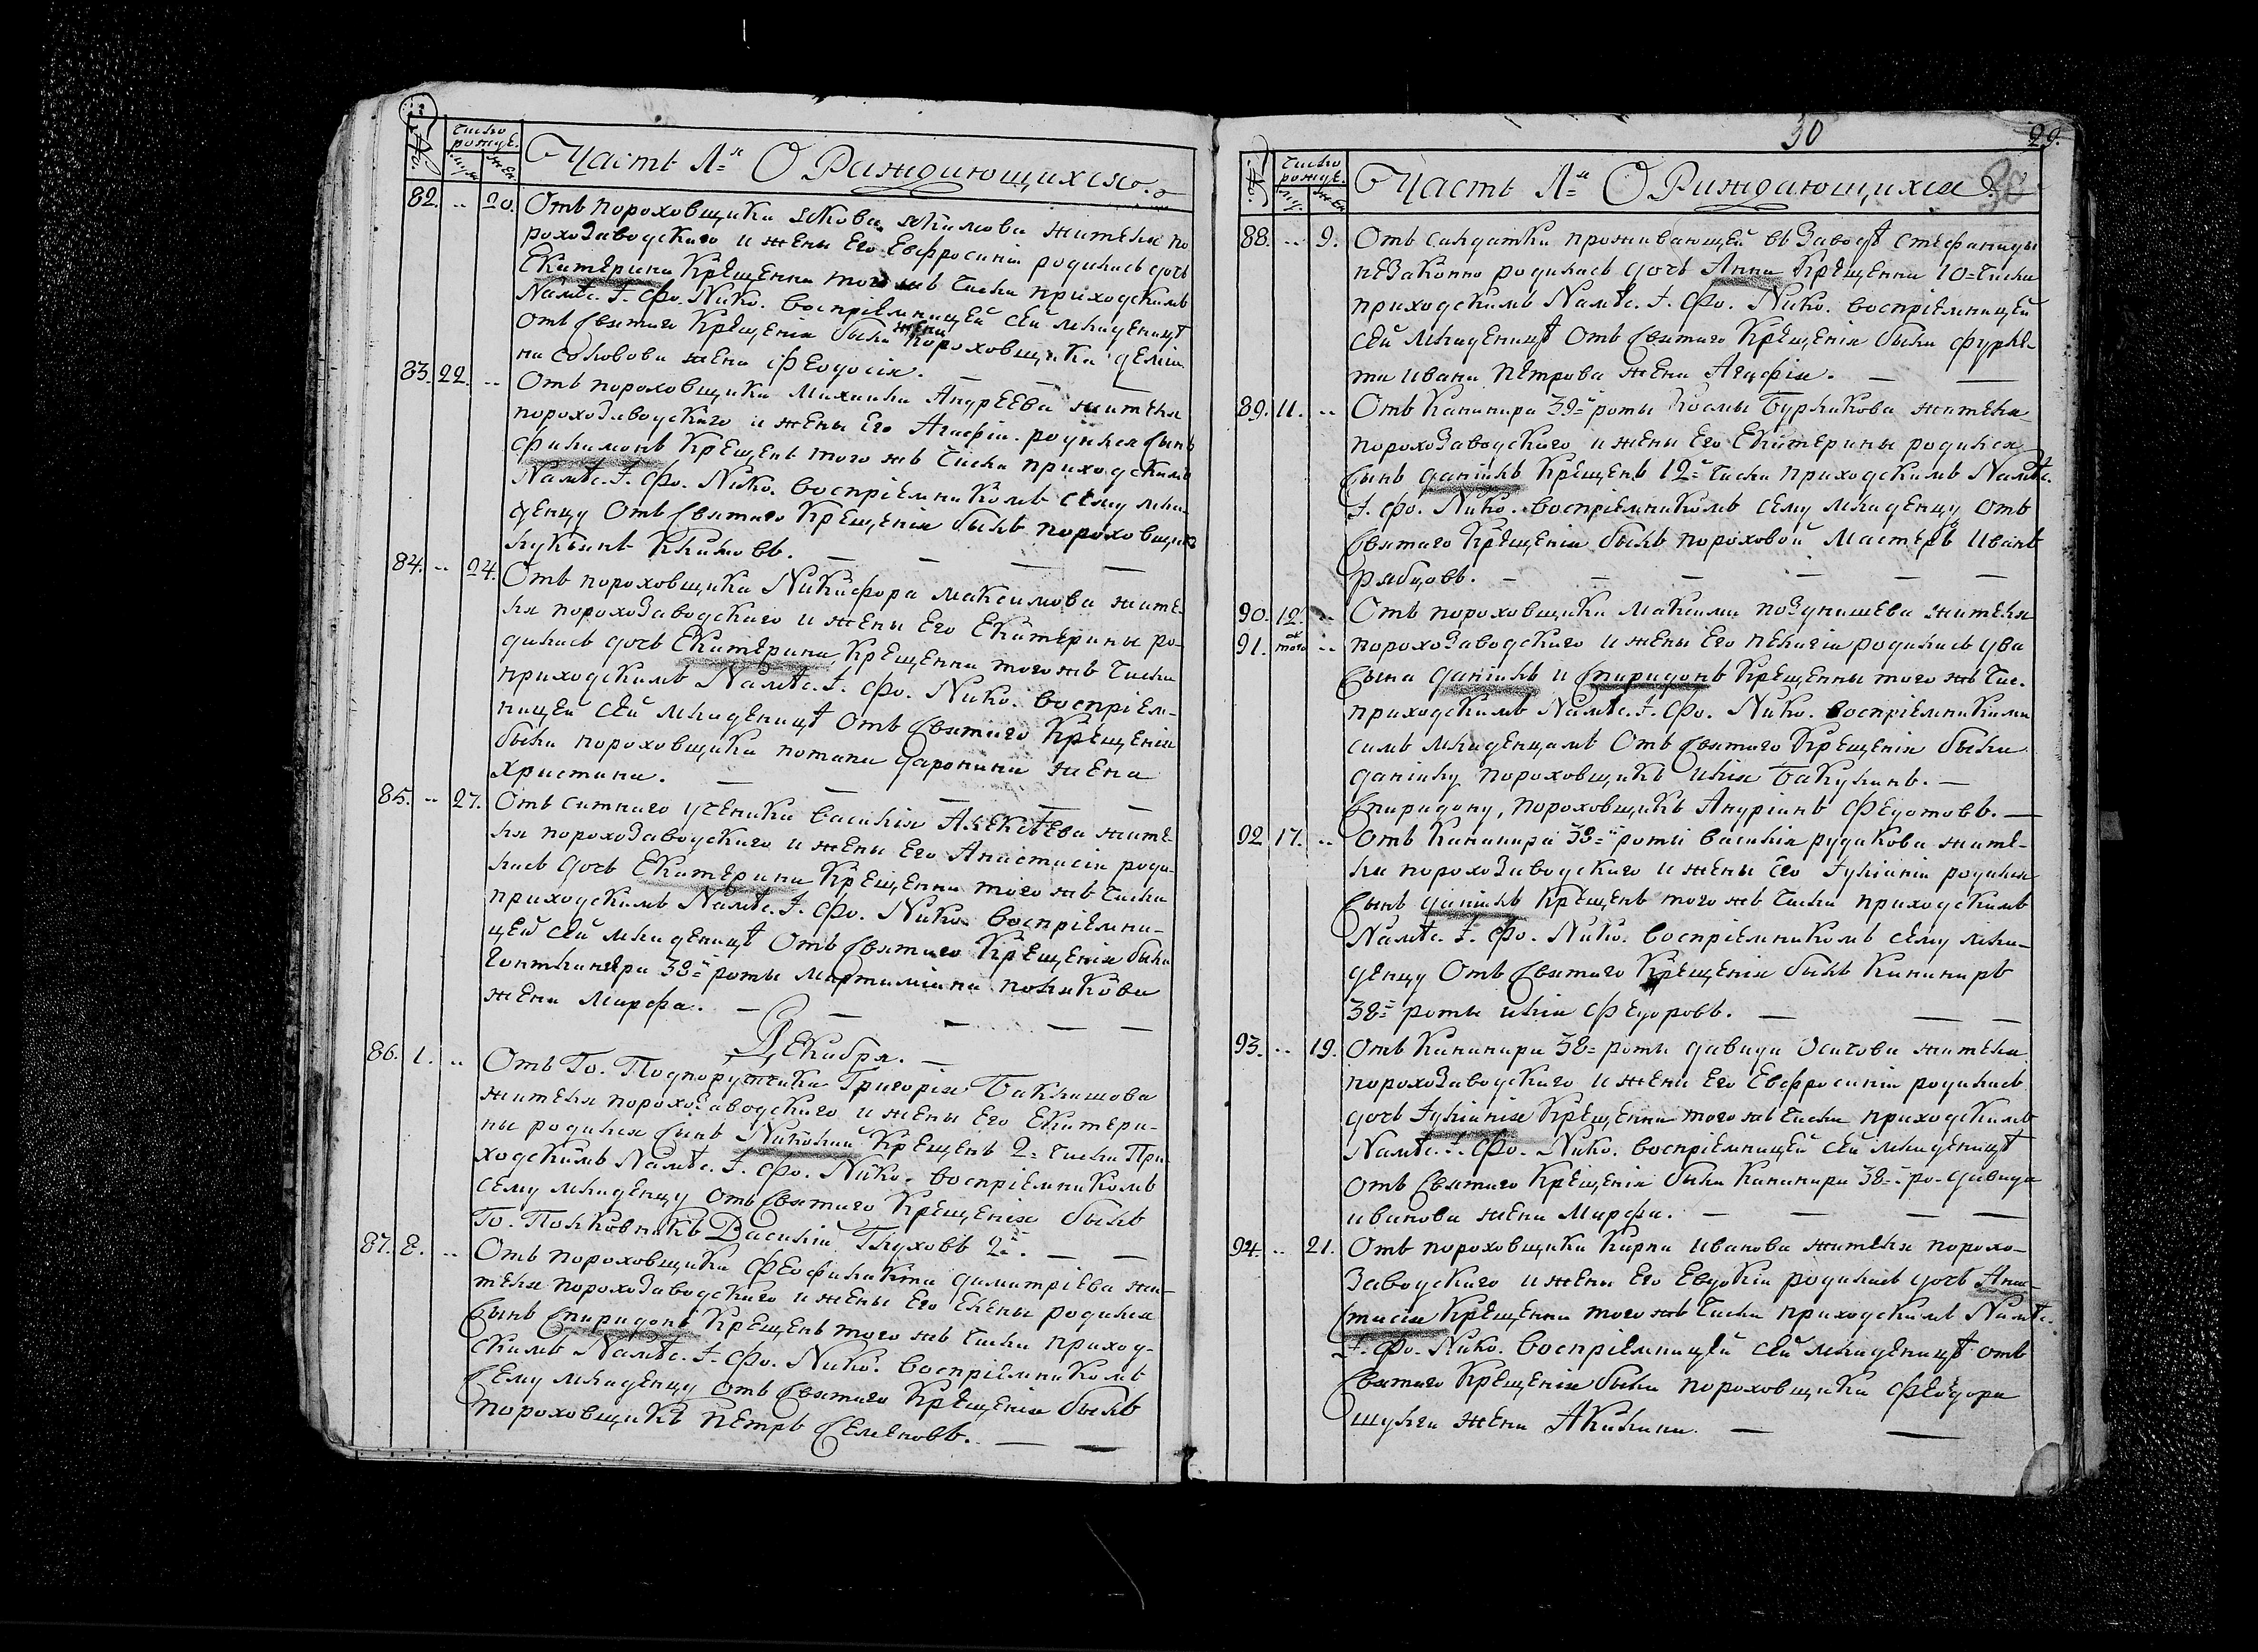 №.
Число рожде.
муж. жен.
Часть 1=я О Раждающихся.
82. .. 20. Отъ пороховщика якова якимова жителя по
рохозаводскаго и жены его Евфросиніи родилась дочь
Екатерина крещенна того жъ числа приходскимъ
Намѣс. І. Фо. Нико. воспріемницей сей младеницѣ
отъ святаго крещенія была жена пороховщика деми
на соловова жена Феодосія.
83. 22. .. Отъ пороховщика Михаила Андреева жителя
порохозаводскаго и жены его Агафіи родился сынъ
Филимонъ крещенъ того жъ числа приходскимъ
Намѣс. І. Фо. Нико. воспріемникомъ сему мла-
денцу отъ святаго крещенія былъ пороховщикъ
лукьянъ Климовъ.
84. .. 24. Отъ пороховщика Никифора максимова жите-
ля порохозаводскаго и жены его Екатерины ро-
дилась дочь Екатерина крещенна того жъ числа
приходскимъ Намѣс. І. Фо. Нико. воспріем-
ницей сей младеницѣ отъ святаго крещенія
была пороховщика потапа даронина жена
христина.
85. .. 27. Отъ ситнаго ученика василія Алексѣева жите-
ля порохозаводскаго и жены его Анастасіи роди-
лась дочь Екатерина крещенна того жъ числа
приходскимъ Намѣс. І. Фо. Нико. воспріемни-
цей сей младеницѣ отъ святаго крещенія была
гонтлангера 38=й роты мартиміана полякова
жена марфа.
Декабря.
86. 1. .. Отъ Го. Подпоручика Григорія Баклашова
жителя порохозаводскаго и жены его Екатери-
ны родился сынъ Николай крещенъ 2= числа При-
ходскимъ Намѣс. І. Фо. Нико. воспріемникомъ
сему младенцу отъ святаго крещенія былъ
Го. Полковникъ Василій Глуховъ 2=й.
87. 8. .. Отъ пороховщика Феофилакта димитріева жи-
теля порохозаводскаго и жены его Елены родился
сынъ спиридонъ крещенъ того жъ числа приход-
скимъ Намѣс. І. Фо. Нико. воспріемникомъ
сему младенцу отъ святаго крещенія былъ
пороховщикъ петръ семеновъ.
30 29.
30
№.
Число рожде.
му. жен
Часть 1=я О Раждающихся.
88. .. 9. Отъ салдатки проживающей въ заводѣ стефаниды
незаконно родилась дочь Анна крещенна 10= числа
приходскимъ Намѣс. І. Фо. Нико. воспріемницей
сей младеницѣ отъ святаго крещенія была фурле-
та ивана петрова жена Агафія.
89. 11. .. Отъ канинира 39=й роты Космы Бурлакова жителя
порохозаводскаго и жены его Екатерины родился
сынъ даніилъ крещенъ 12= числа приходскимъ Намѣс.
І. Фо. Нико. воспріемникомъ сему младенцу отъ
святаго крещенія былъ пороховой мастеръ иванъ
рябцовъ.
90. 12. .. Отъ пороховщика максима позднишева жителя
91. того ж .. порохозаводскаго и жены его пелагіи родились два
сына даніилъ и спиридонъ крещенны того жъ чис.
приходскимъ Намѣс. І. Фо. Нико. воспріемниками
симъ младенцамъ отъ святаго крещенія были
даніилу пороховщикъ илія Бакулинъ.
спиридону, пороховщикъ Андріанъ Федотовъ.
92 17. .. Отъ канинира 38=й роты василія рудакова жите-
ля порохозаводскаго и жены его Іуліаніи родился
сынъ даніилъ крещенъ того жъ числа приходскимъ
Намѣс. І. Фо. Нико. воспріемникомъ сему мла-
денцу отъ святаго крещенія былъ канониръ
38=й роты илія Федоровъ.
93. .. 19. Отъ канинира 38= роты давида Осипова жителя
порохозаводскаго и жены его Евфросиніи родилась
дочь Іуліанія крещенна того жъ числа приходскимъ
Намѣс. І. Фо. Нико. воспріемницей сей младеницѣ
отъ святаго крещенія была канинира 38=й ро. давида
иванова жена Марфа.
94. .. 21. Отъ пороховщика карпа иванова жителя порохо-
заводскаго и жены его Евдокіи родилась дочь Анас-
тасія крещенна того жъ числа приходскимъ Намѣс.
І. Фо. Нико. воспріемницей сей младеницѣ отъ
святаго крещенія была пороховщика Феодора
шульги жена Акилина.